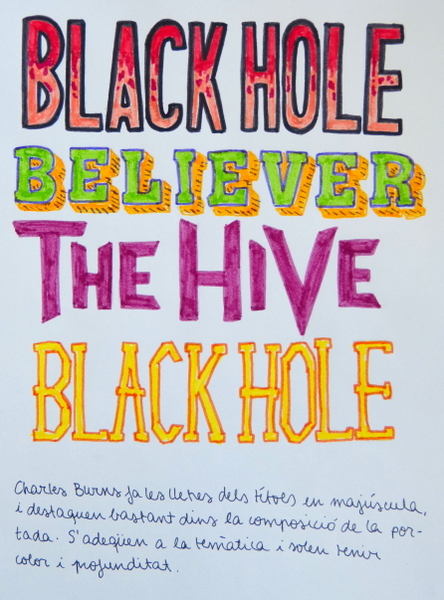 BLACK HOLE
BELIEVER
THE HiVE
BLACK HOLE
Charles Burns fa les lletres dels títols en majúscula,
i destaquen bastant dins la composició de la por-
tada. S'adeqüen a la temàtica i solen tenir
color i profunditat.